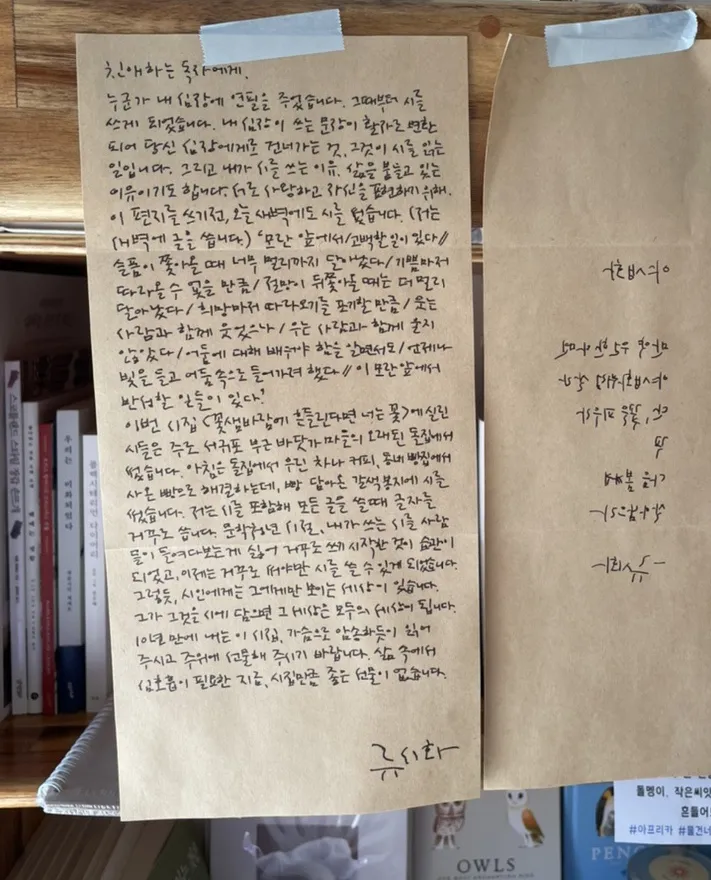 친애하는 독자에게.
누군가 내 심장에 연필을 주었습니다. 그때부터 시를
쓰게 되었습니다. 내 심장이 쓰는 문장이 활자로 변환
되어 당신 심장에게로 건너가는 것, 그것이 시를 읽는
일입니다. 그리고 내가 시를 쓰는 이유, 삶을 붙들고 있는
이유이기도 합니다. 서로 사랑하고 자신을 표현하기 위해.
이 편지를 쓰기 전, 오늘 새벽에도 시를 썼습니다. (저는
새벽에 글을 씁니다.) '모란 앞에서/고백할 일이 있다//
슬픔이 쫓아올 때 너무 멀리까지 달아났다/기쁨마저
따라올 수 없을 만큼/절망이 뒤쫓아올 때는 더 멀리
달아났다/희망마저 따라오기를 포기할 만큼/웃는
사람과 함께 웃었으나/우는 사람과 함께 울지
않았다/어둠에 대해 배워야 함을 알면서도/언제나
빛을 들고 어둠 속으로 들어가려 했다//이 모란 앞에서
반성할 일들이 있다'
이번 시집 <꽃샘바람에 흔들린다면 너는 꽃>에 실린
시들은 주로 서귀포 부근 바닷가 마을의 오래된 돌집에서
썼습니다. 아침은 돌집에서 우린 차나 커피, 동네 빵집에서
사온 빵으로 해결하는데, 빵 담아온 갈색 봉지에 시를
썼습니다. 저는 시를 포함해 모든 글을 쓸 때 글자를
거꾸로 씁니다. 문학청년 시절, 내가 쓰는 시를 사람
들이 들여다보는 게 싫어 거꾸로 쓰기 시작한 것이 습관이
되었고, 이제는 거꾸로 써야만 시를 쓸 수 있게 되었습니다.
그렇듯, 시인에게는 그에게만 보이는 세상이 있습니다.
그가 그것을 시에 담으면 그 세상은 모두의 세상이 됩니다.
10년 만에 내는 이 시집, 가슴으로 암송하듯이 읽어
주시고 주위에 선물해 주시기 바랍니다. 삶 속에서
심호흡이 필요한 지금, 시집만큼 좋은 선물이 없습니다.
류시화
플렉시테리언 다이어리
OWLS
PEN
돌멩이, 작은씨앗
흔들어
#아프리카 #물건너